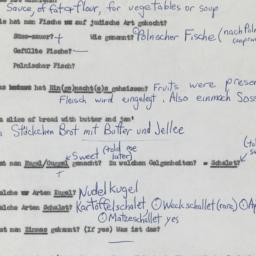 Sauce, of fat or flour, for vegetables or soup
hat man Fische auf jüdische Art gekocht?
Süss-sauer? + Wie genannt? Polnischer Fische (nach Poln
Gefüllte Fische?
Polnischer Fisch?
geheissen? Fruits were preser
Fleisch wird engelegt. Also einmach Soss
a slice of bread with butter and jam'
Stückchen Brot mit Butter und Jellee
Sweet (told me later) (to
at man Kugel/ genannt? In welchen Gelegenheiten? = Schalet?
lche Arten Kugel? Nudelkugel
lche Arten Schalet? Kartoffelschalet ① Weckschallet (rare) ② Ap
① Matzeschallet yes
at man Zimmes gekannt? (If yes) Was ist das?